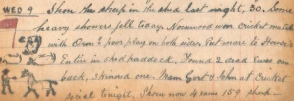 WED 9 Shore the strap in the shed last night, 30. Some
heavy showers fell today. Norwood won cricket match
with Oron? poor play on both sides. Put more to Stewie's
Entire in shed paddock. Found 2 dead Ewes on
back, skinned one. Mam Gort & John at Cricket
social tonight. Shorn now 4 rams 159 shed.